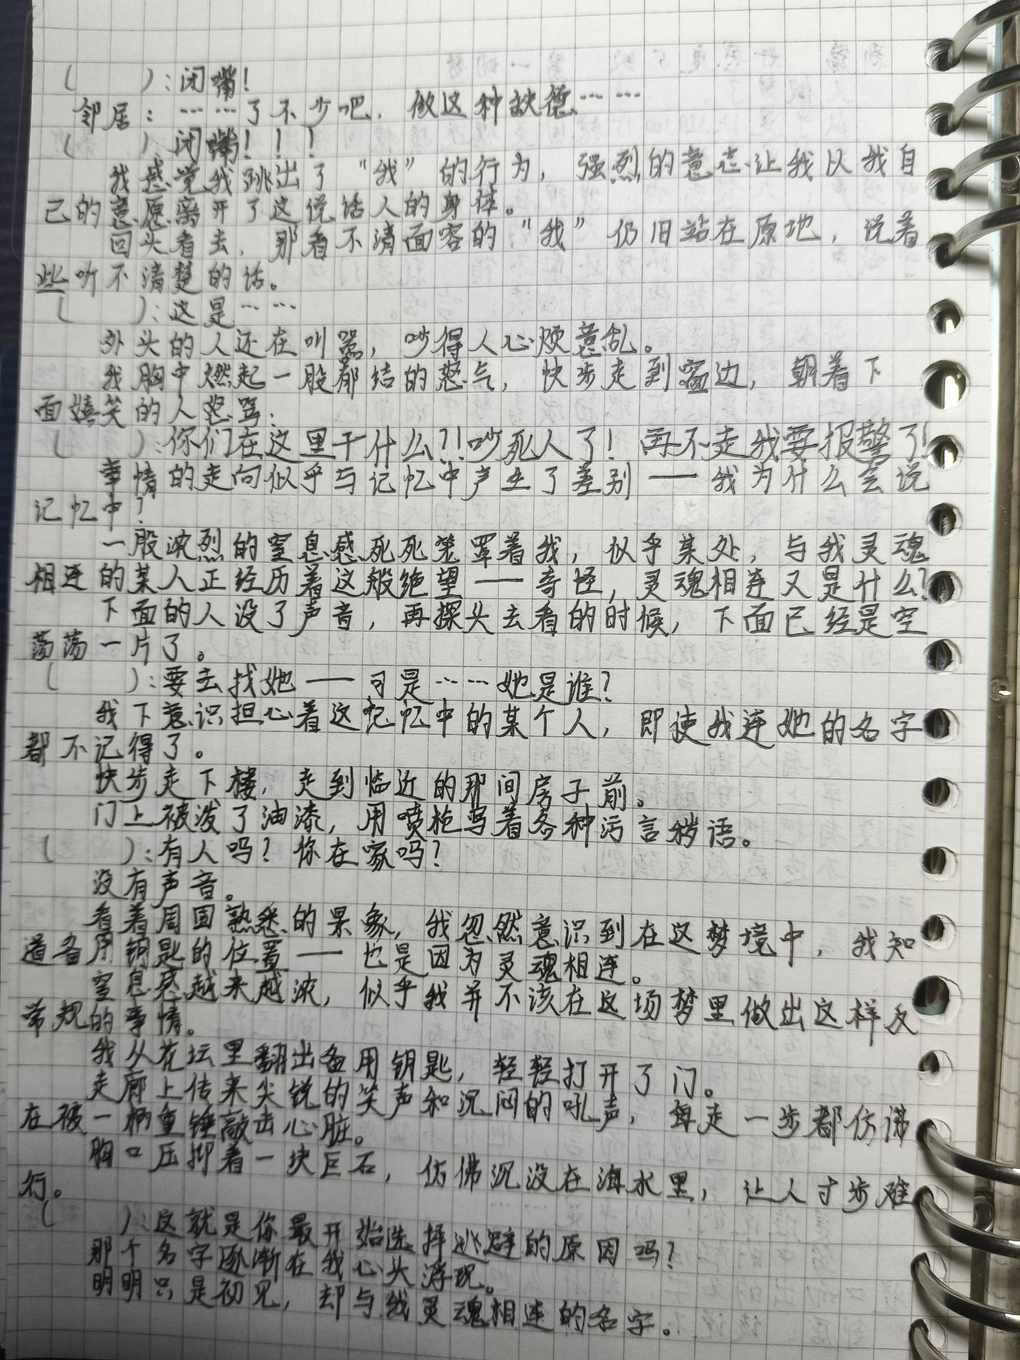 (　　):闭嘴!
邻居:……了不少吧,做这种缺德……
(　　):闭嘴!!!
我感觉我跳出了“我”的行为,强烈的意志让我以我自
己的意愿离开了这说话人的身体。
回头看去,那看不清面容的“我”仍旧站在原地,说着
些听不清楚的话。
(　　):这是……
外头的人还在叫嚣,吵得人心烦意乱。
我胸中燃起一股郁结的怒气,快步走到窗边,朝着下
面嬉笑的人怒骂:
(　　):你们在这里干什么?!吵死人了!再不走我要报警了!
事情的走向似乎与记忆中产生了差别——我为什么会说
记忆中?
一股浓烈的窒息感死死笼罩着我,似乎某处,与我灵魂
相连的某人正经历着这般绝望——奇怪,灵魂相连又是什么?
下面的人没了声音,再探头去看的时候,下面已经是空
荡荡一片了。
(　　):要去找她——可是……她是谁?
我下意识担心着这记忆中的某个人,即使我连她的名字
都不记得了。
快步走下楼,走到临近的那间房子前。
门上被泼了油漆,用喷枪写着各种污言秽语。
(　　):有人吗?你在家吗?
没有声音。
看着周围熟悉的景象,我忽然意识到在这梦境中,我知
道备用钥匙的位置——也是因为灵魂相连。
窒息感越来越浓,似乎我并不该在这场梦里做出这样反
常规的事情。
我从花坛里翻出备用钥匙,轻轻打开了门。
走廊上传来尖锐的笑声和沉闷的吼声,每走一步都仿佛
在被一柄重锤敲击心脏。
胸口压抑着一块巨石,仿佛沉没在海水里,让人寸步难
行。
(　　):这就是你最开始选择逃避的原因吗?
那个名字逐渐在我心头浮现。
明明只是初见,却与我灵魂相连的名字。